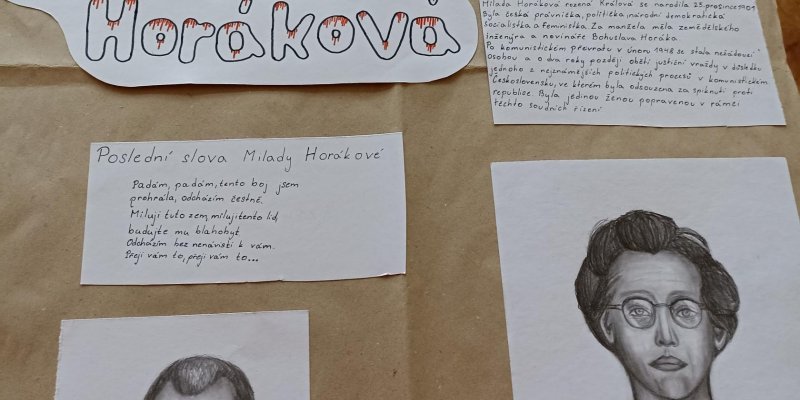 Horáková
Milada Horáková rozená Králová se narodila 25. prosince 1901
Byla česká právnička, politička, národní demokratická
socialistka a feministka. Za manžela měla zemědělského
inženýra a novináře Bohuslava Horáka.
Po komunistickém převratu v únoru 1948 se stala nežádoucí
osobou a o dva roky později obětí justiční vraždy v důsledku
jednoho z nejznámějších politických procesů v komunistickém
Československu, ve kterém byla odsouzena za spiknutí proti
republice. Byla jedinou ženou popravenou v rámci
těchto soudních řízení
Poslední slova Milady Horákové
Padám, padám, tento boj jsem
prohrála, odcházím čestně.
Miluji tuto zem, miluji tento lid,
budujte mu blahobyt
Odcházím bez nenávisti k vám.
Přeji vám to, přeji vám to...